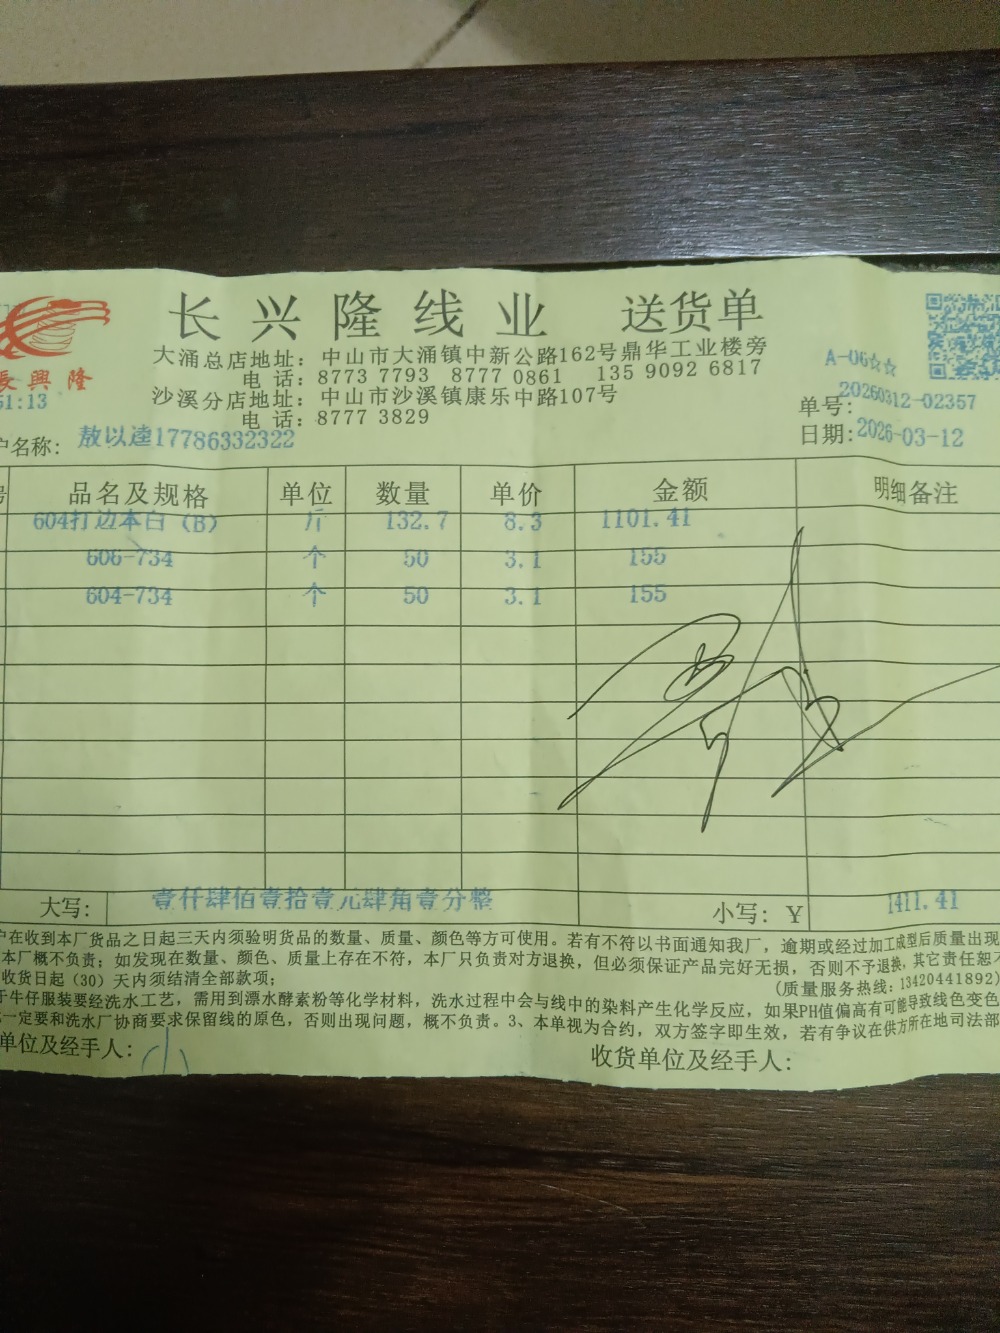 长兴隆线业 送货单
大涌总店地址：中山市大涌镇中新公路162号鼎华工业楼旁
电 话：8773 7793 8777 0861 135 9092 6817
沙溪分店地址：中山市沙溪镇康乐中路107号
电 话：8777 3829
長興隆
51:13
A-06☆☆
单号：20260312-02357
日期：2026-03-12
户名称：敖以逵17786332322
品名及规格 单位 数量 单价 金额 明细备注
604打边本白（B） 斤 132.7 8.3 1101.41
606-734 个 50 3.1 155
604-734 个 50 3.1 155
大写： 壹仟肆佰壹拾壹元肆角壹分整 小写：¥ 1411.41
户在收到本厂货品之日起三天内须验明货品的数量、质量、颜色等方可使用。若有不符以书面通知我厂，逾期或经过加工成型后质量出现
本厂概不负责；如发现在数量、颜色、质量上存在不符，本厂只负责对方退换，但必须保证产品完好无损，否则不予退换，其它责任恕不
收货日起（30）天内须结清全部款项； (质量服务热线：13420441892)
于牛仔服装要经洗水工艺，需用到漂水酵素粉等化学材料，洗水过程中会与线中的染料产生化学反应，如果PH值偏高有可能导致线色变色
一定要和洗水厂协商要求保留线的原色，否则出现问题，概不负责。3、本单视为合约，双方签字即生效，若有争议在供方所在地司法部
单位及经手人： 小 收货单位及经手人：